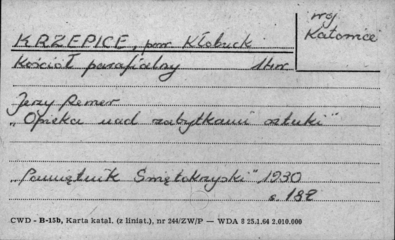 woj
Katowice
KRZEPICE, pow. Kłobuck
Kościół parafialny
Jerzy Remer
"Opieka nad zabytkami sztuki"
"Pamiętnik Świętokrzyski" 1930
s. 182
CWD - B-15b, Karta katal. (z liniat.), nr 244/ZW/P — WDA 8 25.1.64 2.010.000